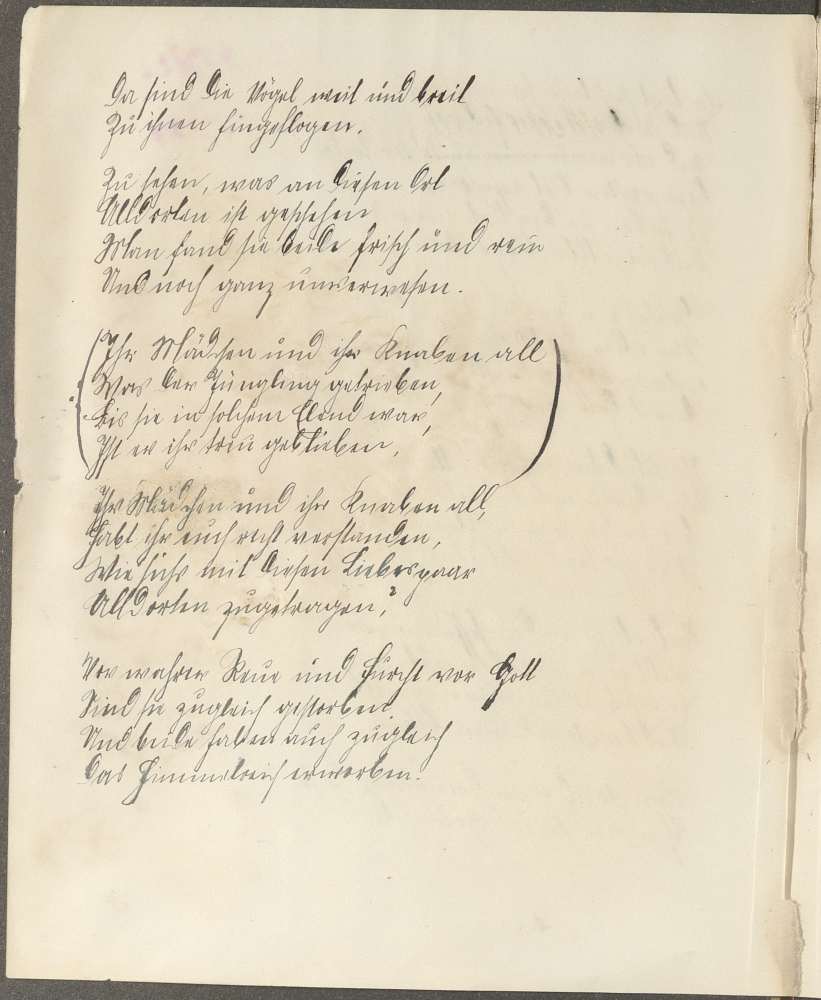 Da sind die Vögel weit und breit
Zu ihnen hingeflogen.
Zu sehen, was an diesen Ort
Alldorten ist geschehen
Man fand sie beide frisch und rein
Und noch ganz unverwesen.
(Ihr Mädchen und ihr Knaben all
Was der Jüngling getrieben,
Bis sie in solchem Elend war,
Ist er ihr treu geblieben,)
Ihr Mädchen und ihr Knaben all,
Habt ihr euch recht verstanden,
Wie sichs mit diesen Liebespaar
Alldorten zugetragen,?
Vor wahrer Reue und Furcht vor Gott
Sind sie zugleich gestorben
Und beide haben auch zugleich
Das Himmelreich erworben.